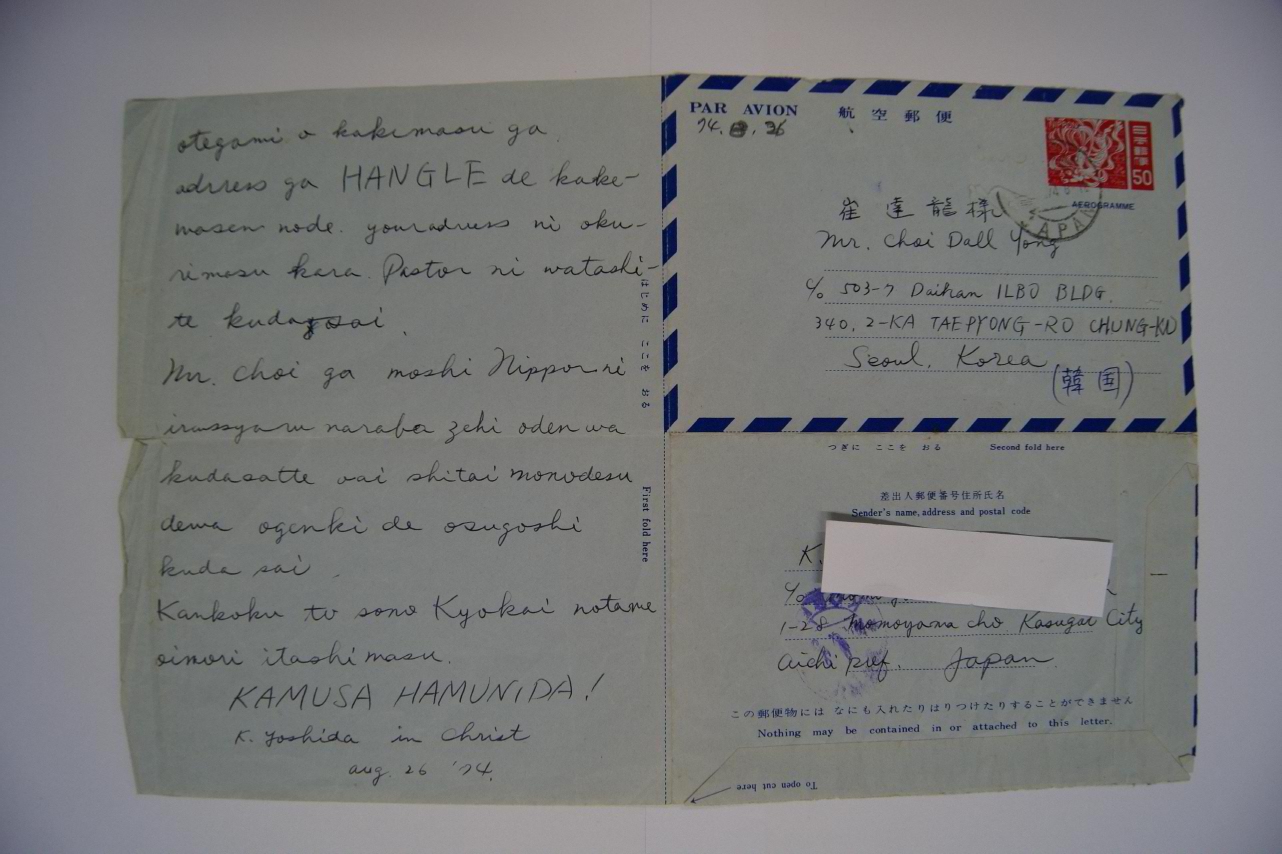 otegami o kakimasu ga
adress ga HANGLE de kake-
masen node. your adress ni oku-
rimasu kara. Pastor ni watashi-
te kudasai.
Mr. Choi ga moshi Nippon ni
irassyaru naraba zehi odenwa
kudasatte oai shitai monodesu
dewa ogenki de osugoshi
kuda sai.
Kankoku to sono Kyokai notame
oinori itashimasu.
KAMUSA HAMUNIDA!
K. Yoshida in Christ
aug. 26 '74.
はじめに ここを おる
First fold here
PAR AVION 航空郵便
74. 8. 26
日本郵便
50
AEROGRAMME
JAPAN
崔達龍様
Mr. Choi Dall Yong
c/o 503-7 Daihan ILBO BLDG.
340, 2-KA TAEPYONG-RO CHUNG-KU
Seoul, Korea
(韓国)
つぎに ここを おる Second fold here
差出人郵便番号住所氏名
Sender's name, address and postal code
K.
c/o
1-28 Momoyama cho Kasugai City
Aichi pref. Japan
この郵便物には なにも入れたりはりつけたりすることができません
Nothing may be contained in or attached to this letter.
To open cut here